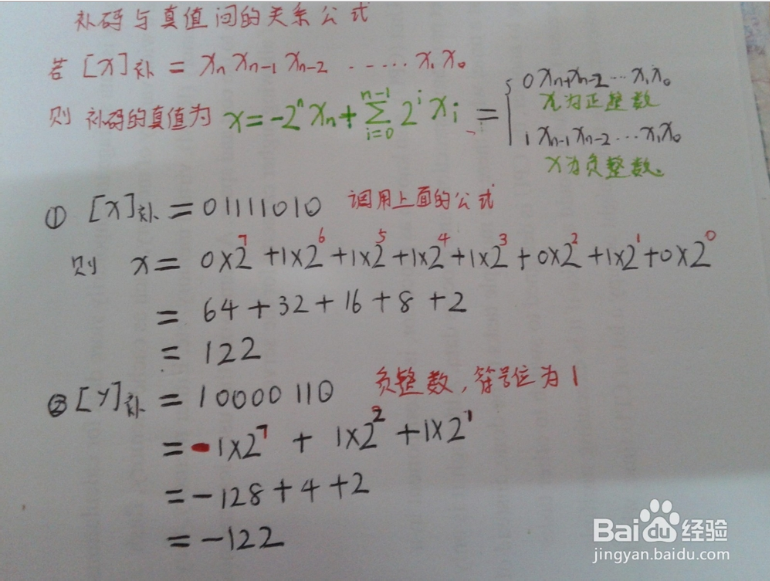 补码与真值间的关系公式
若 [X]补 = XₙXₙ₋₁Xₙ₋₂ ‥‥‥ X₁X₀
则 补码的真值为 X=-2ⁿXₙ+∑ⁿ⁻¹ᵢ₌₀2ⁱXᵢ = {
0Xₙ₋₁Xₙ₋₂…X₁X₀
X为正整数
1Xₙ₋₁Xₙ₋₂…X₁X₀
X为负整数。
① [X]补=01111010 调用上面的公式
则 X= 0×2⁷+1×2⁶+1×2⁵+1×2⁴+1×2³+0×2²+1×2¹+0×2⁰
= 64+32+16+8+2
= 122
② [Y]补 = 10000110 负整数，符号位为1
=-1×2⁷ + 1×2² +1×2¹
=-128+4+2
=-122
Baidu经验
jingyan.baidu.com